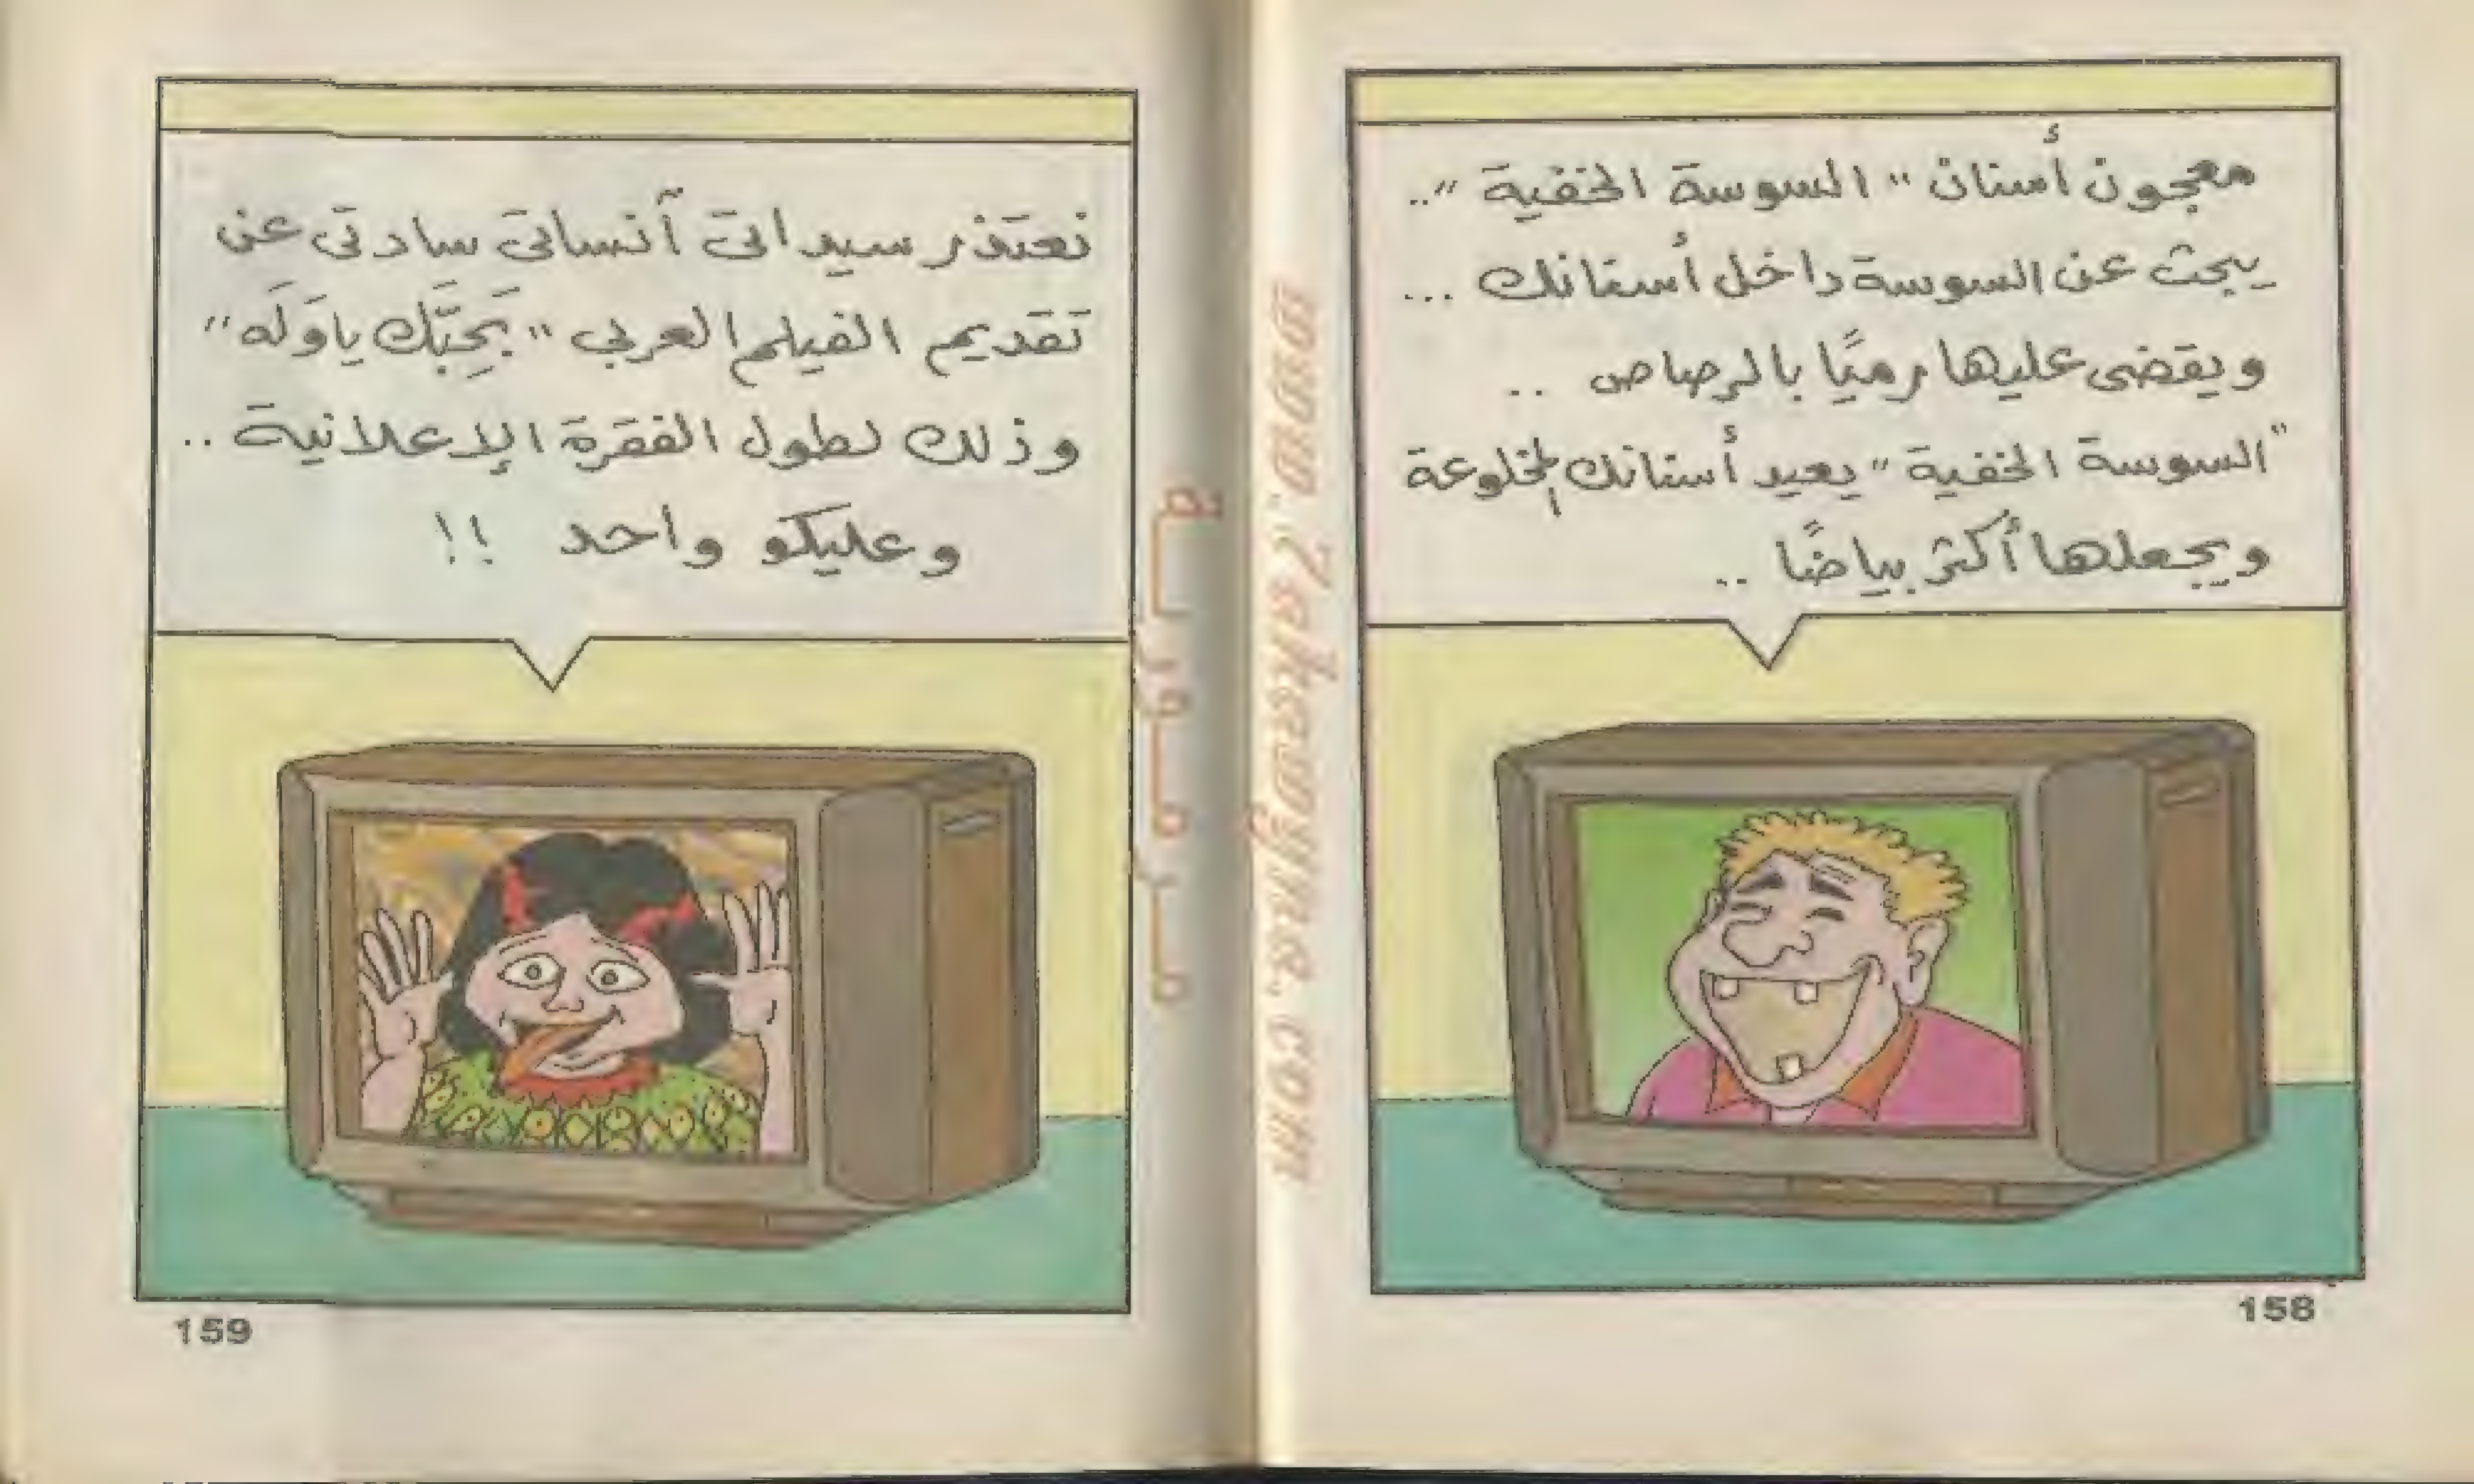 معجون أسنان "السوسة الخفية"..
يبحث عن السوسة داخل أسنانك ...
ويقضى عليها رميًا بالرصاص ..
"السوسة الخفية" يعيد أسنانك المخلوعة
ويجعلها أكثر بياضًا ..
158
نعتذر سيداتى آنساتى سادتى عن
تقديم الفيلم العربي "بَحِبَّك ياوَلَه"
وذلك لطول الفقرة الإعلانية ..
وعليكو واحد !!
159
www.Zakawyna.com